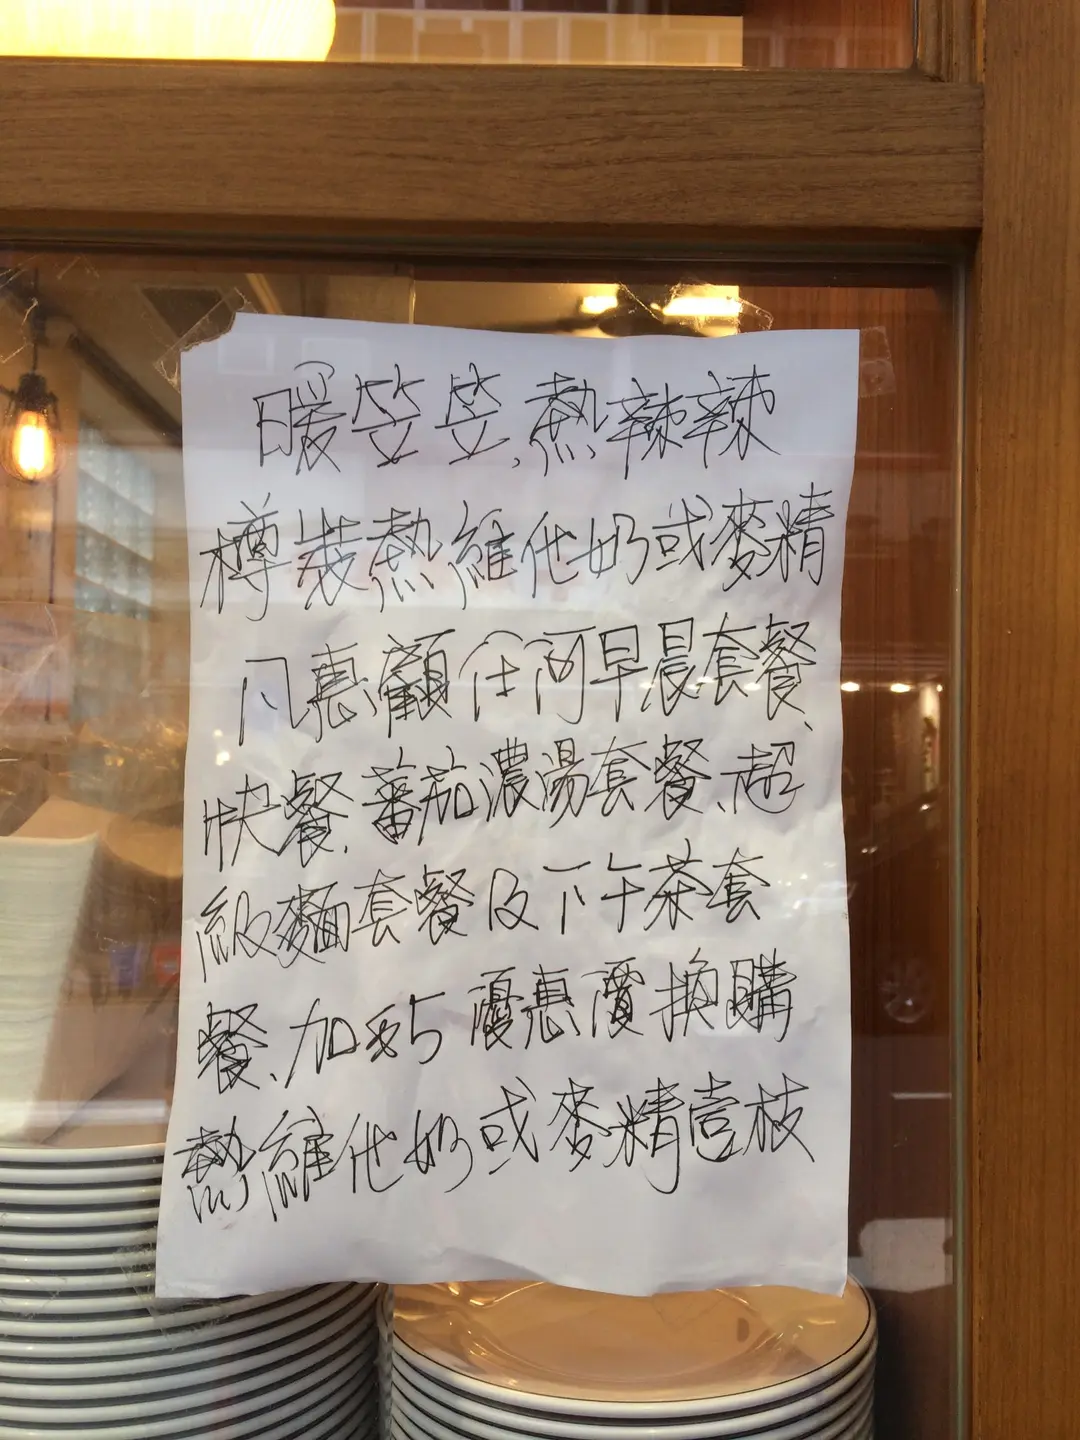 暖笠笠,熱辣辣
樽裝熱維他奶或麥精
凡惠顧任何早晨套餐、
快餐、蕃茄濃湯套餐、超
級麵套餐及下午茶套
餐、加$5優惠價換購
熱維他奶或麥精壹枝